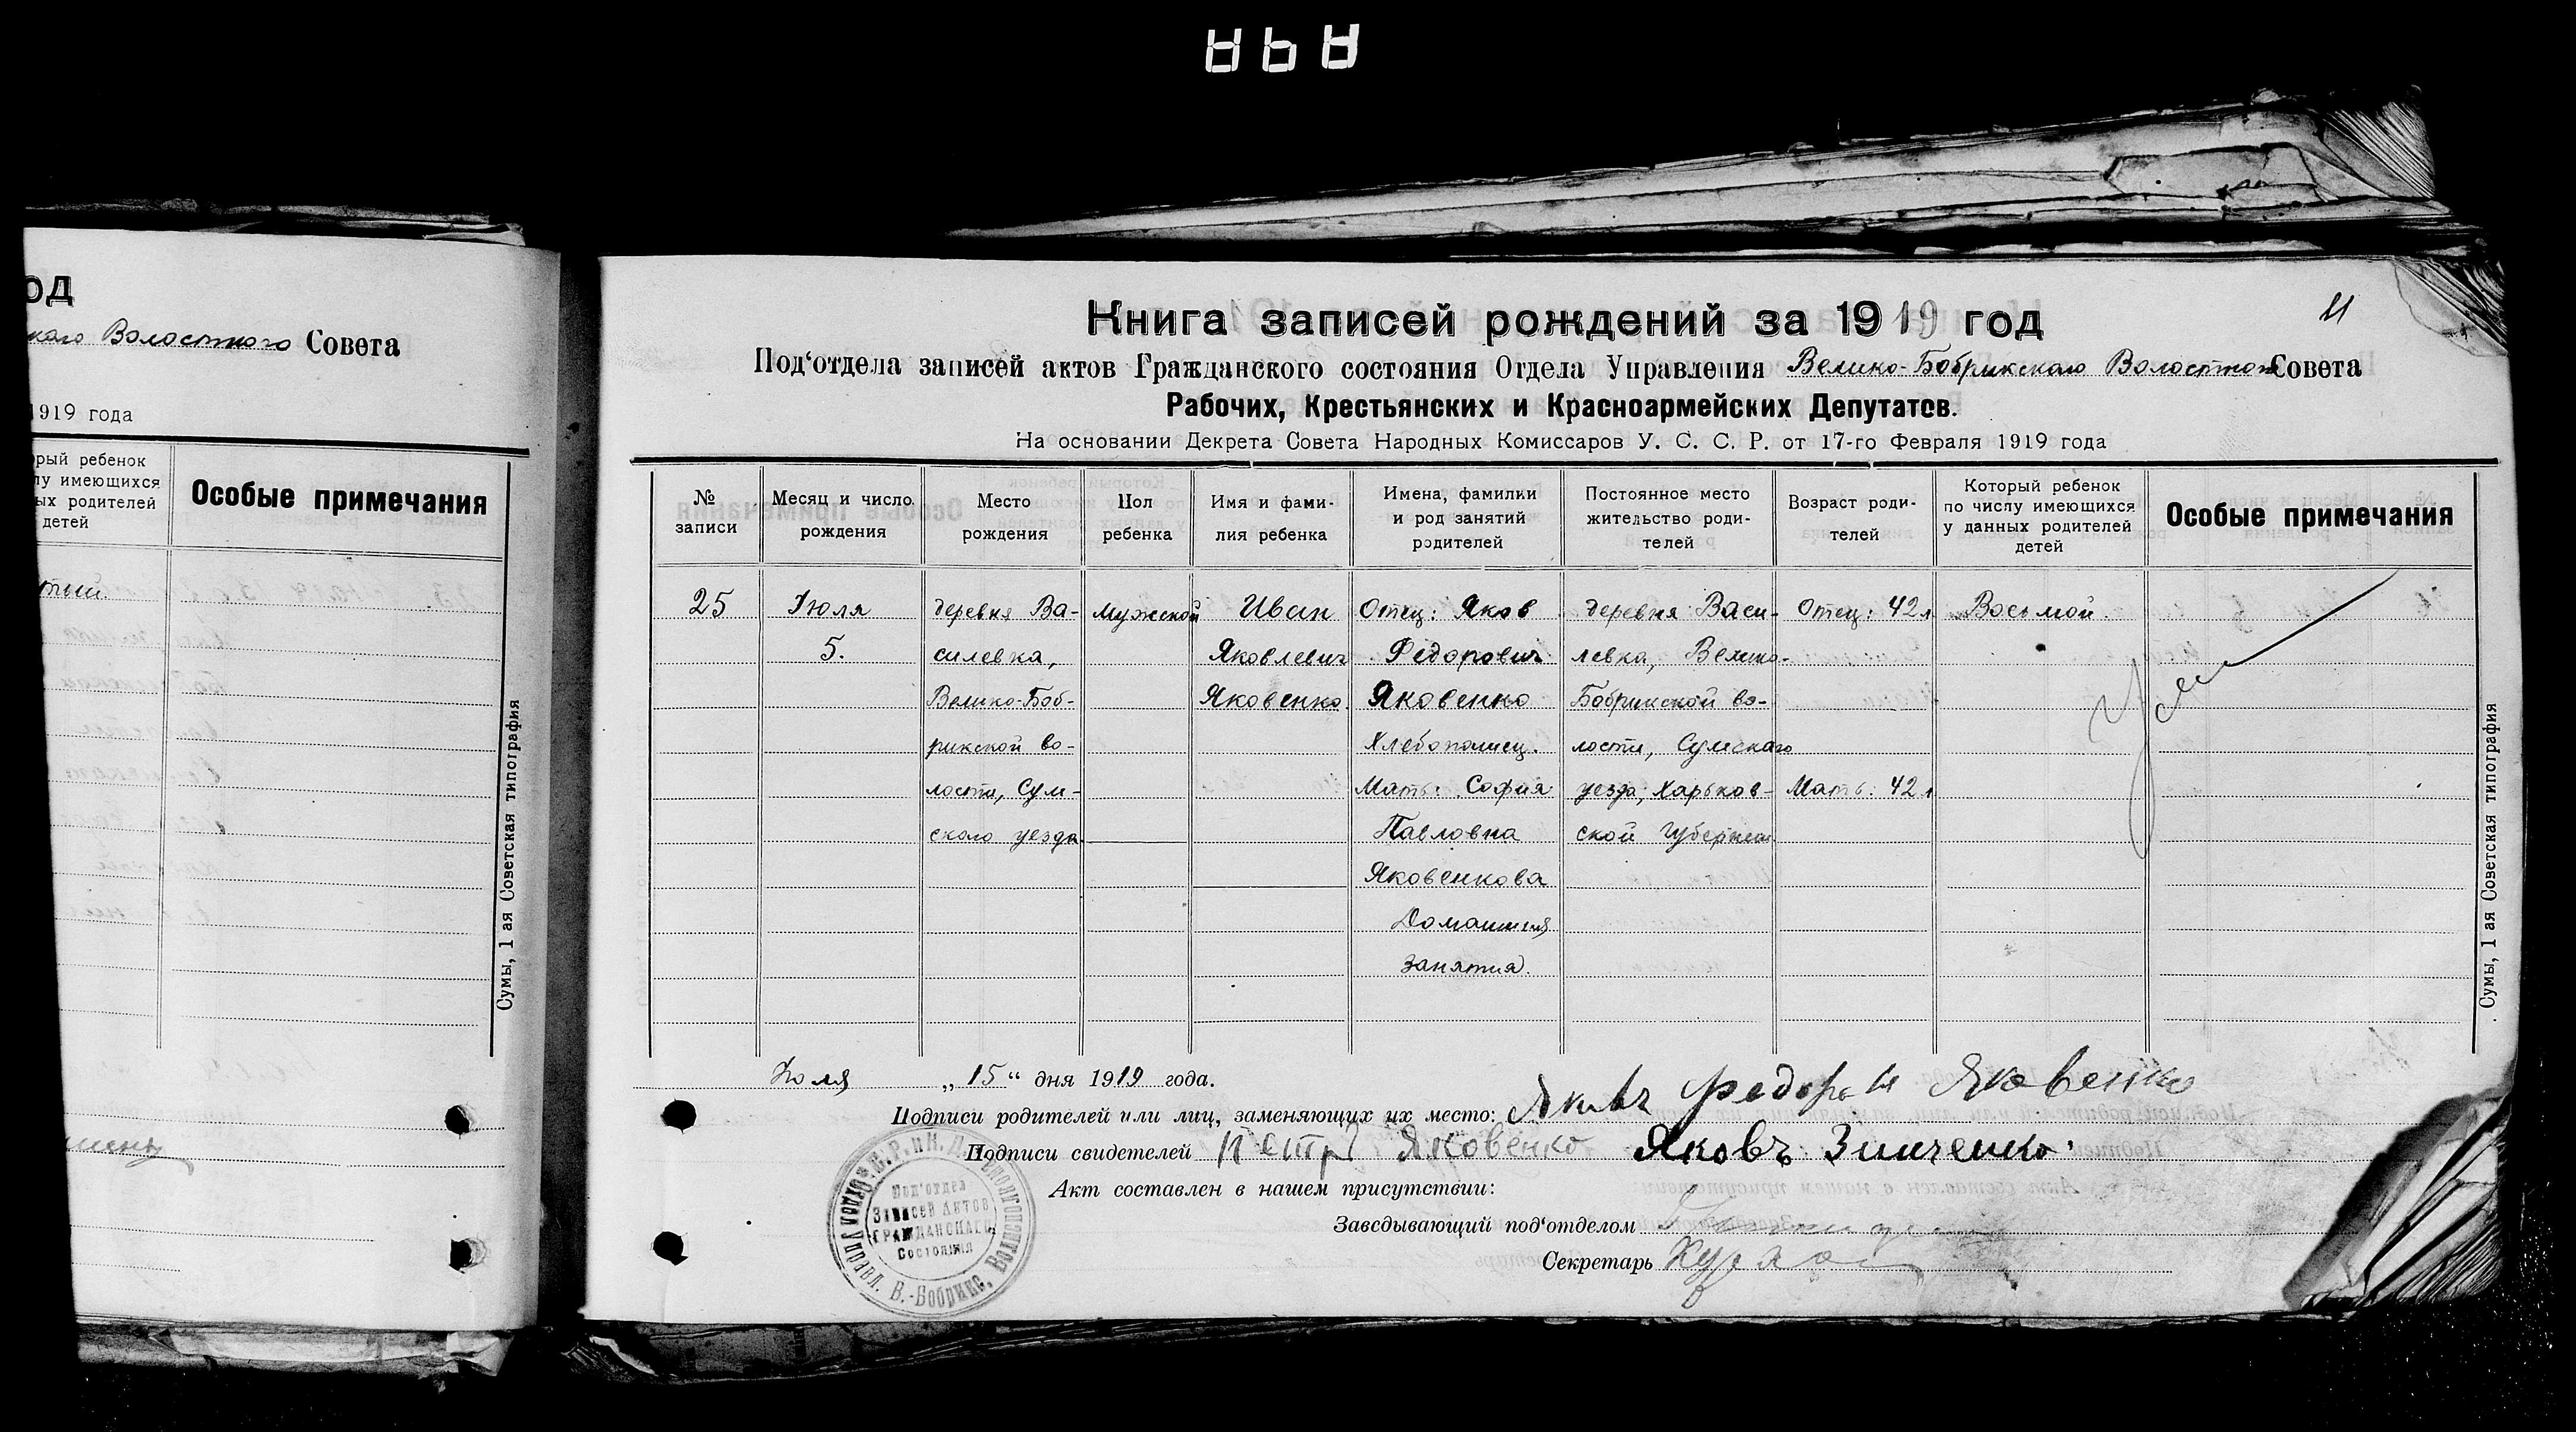 од
каго Волостного Совета
1919 года
рый ребенок
лу имеющихся
ых родителей
детей
Особые примечания
тый.
Сумы, 1 ая Советская типография
11
Книга записей рождений за 1919 год
Под‘отдела записей актов Гражданского состояния Отдела Управления Велико-Бобрикскаго Волостного Совета
Рабочих, Крестьянских и Красноармейских Депутатов.
На основании Декрета Совета Народных Комиссаров У. С. С. Р. от 17-го Февраля 1919 года
№ записи
Месяц и число рождения
Место рождения
Пол ребенка
Имя и фами-
лия ребенка
Имена, фамилки
и род занятий
родителей
Постоянное место
жительство роди-
телей
Возраст роди-
телей
Который ребенок
по числу имеющихся
у данных родителей
детей
Особые примечания
25
Июля
5.
деревня Ва-
силевка,
Велико-Боб-
рикской во-
лости, Сум-
ского уезда.
Мужской
Иван
Яковлевич
Яковенко.
Отец: Яков
Федорович
Яковенко
Хлебопашец.
Мать: София
Павловна
Яковенкова
Домашния
занятия.
деревня Васи-
левка, Велико-
Бобрикской во-
лости, Сумскаго
уезда, Харьков-
ской губернии
Отец: 42 л
Мать: 42 л
Восьмой.
Сумы, 1 ая Советская типография
Июля „15“ дня 1919 года.
Подписи родителей или лиц, заменяющих их место: Яковъ Яковенко
Подписи свидетелей Петръ Яковенко Яковъ Зинченко
Акт составлен в нашем присутствии:
Заведывающий под‘отделом
Секретарь
Под‘отдел
Записей Актов
Гражданскаго
Состояния